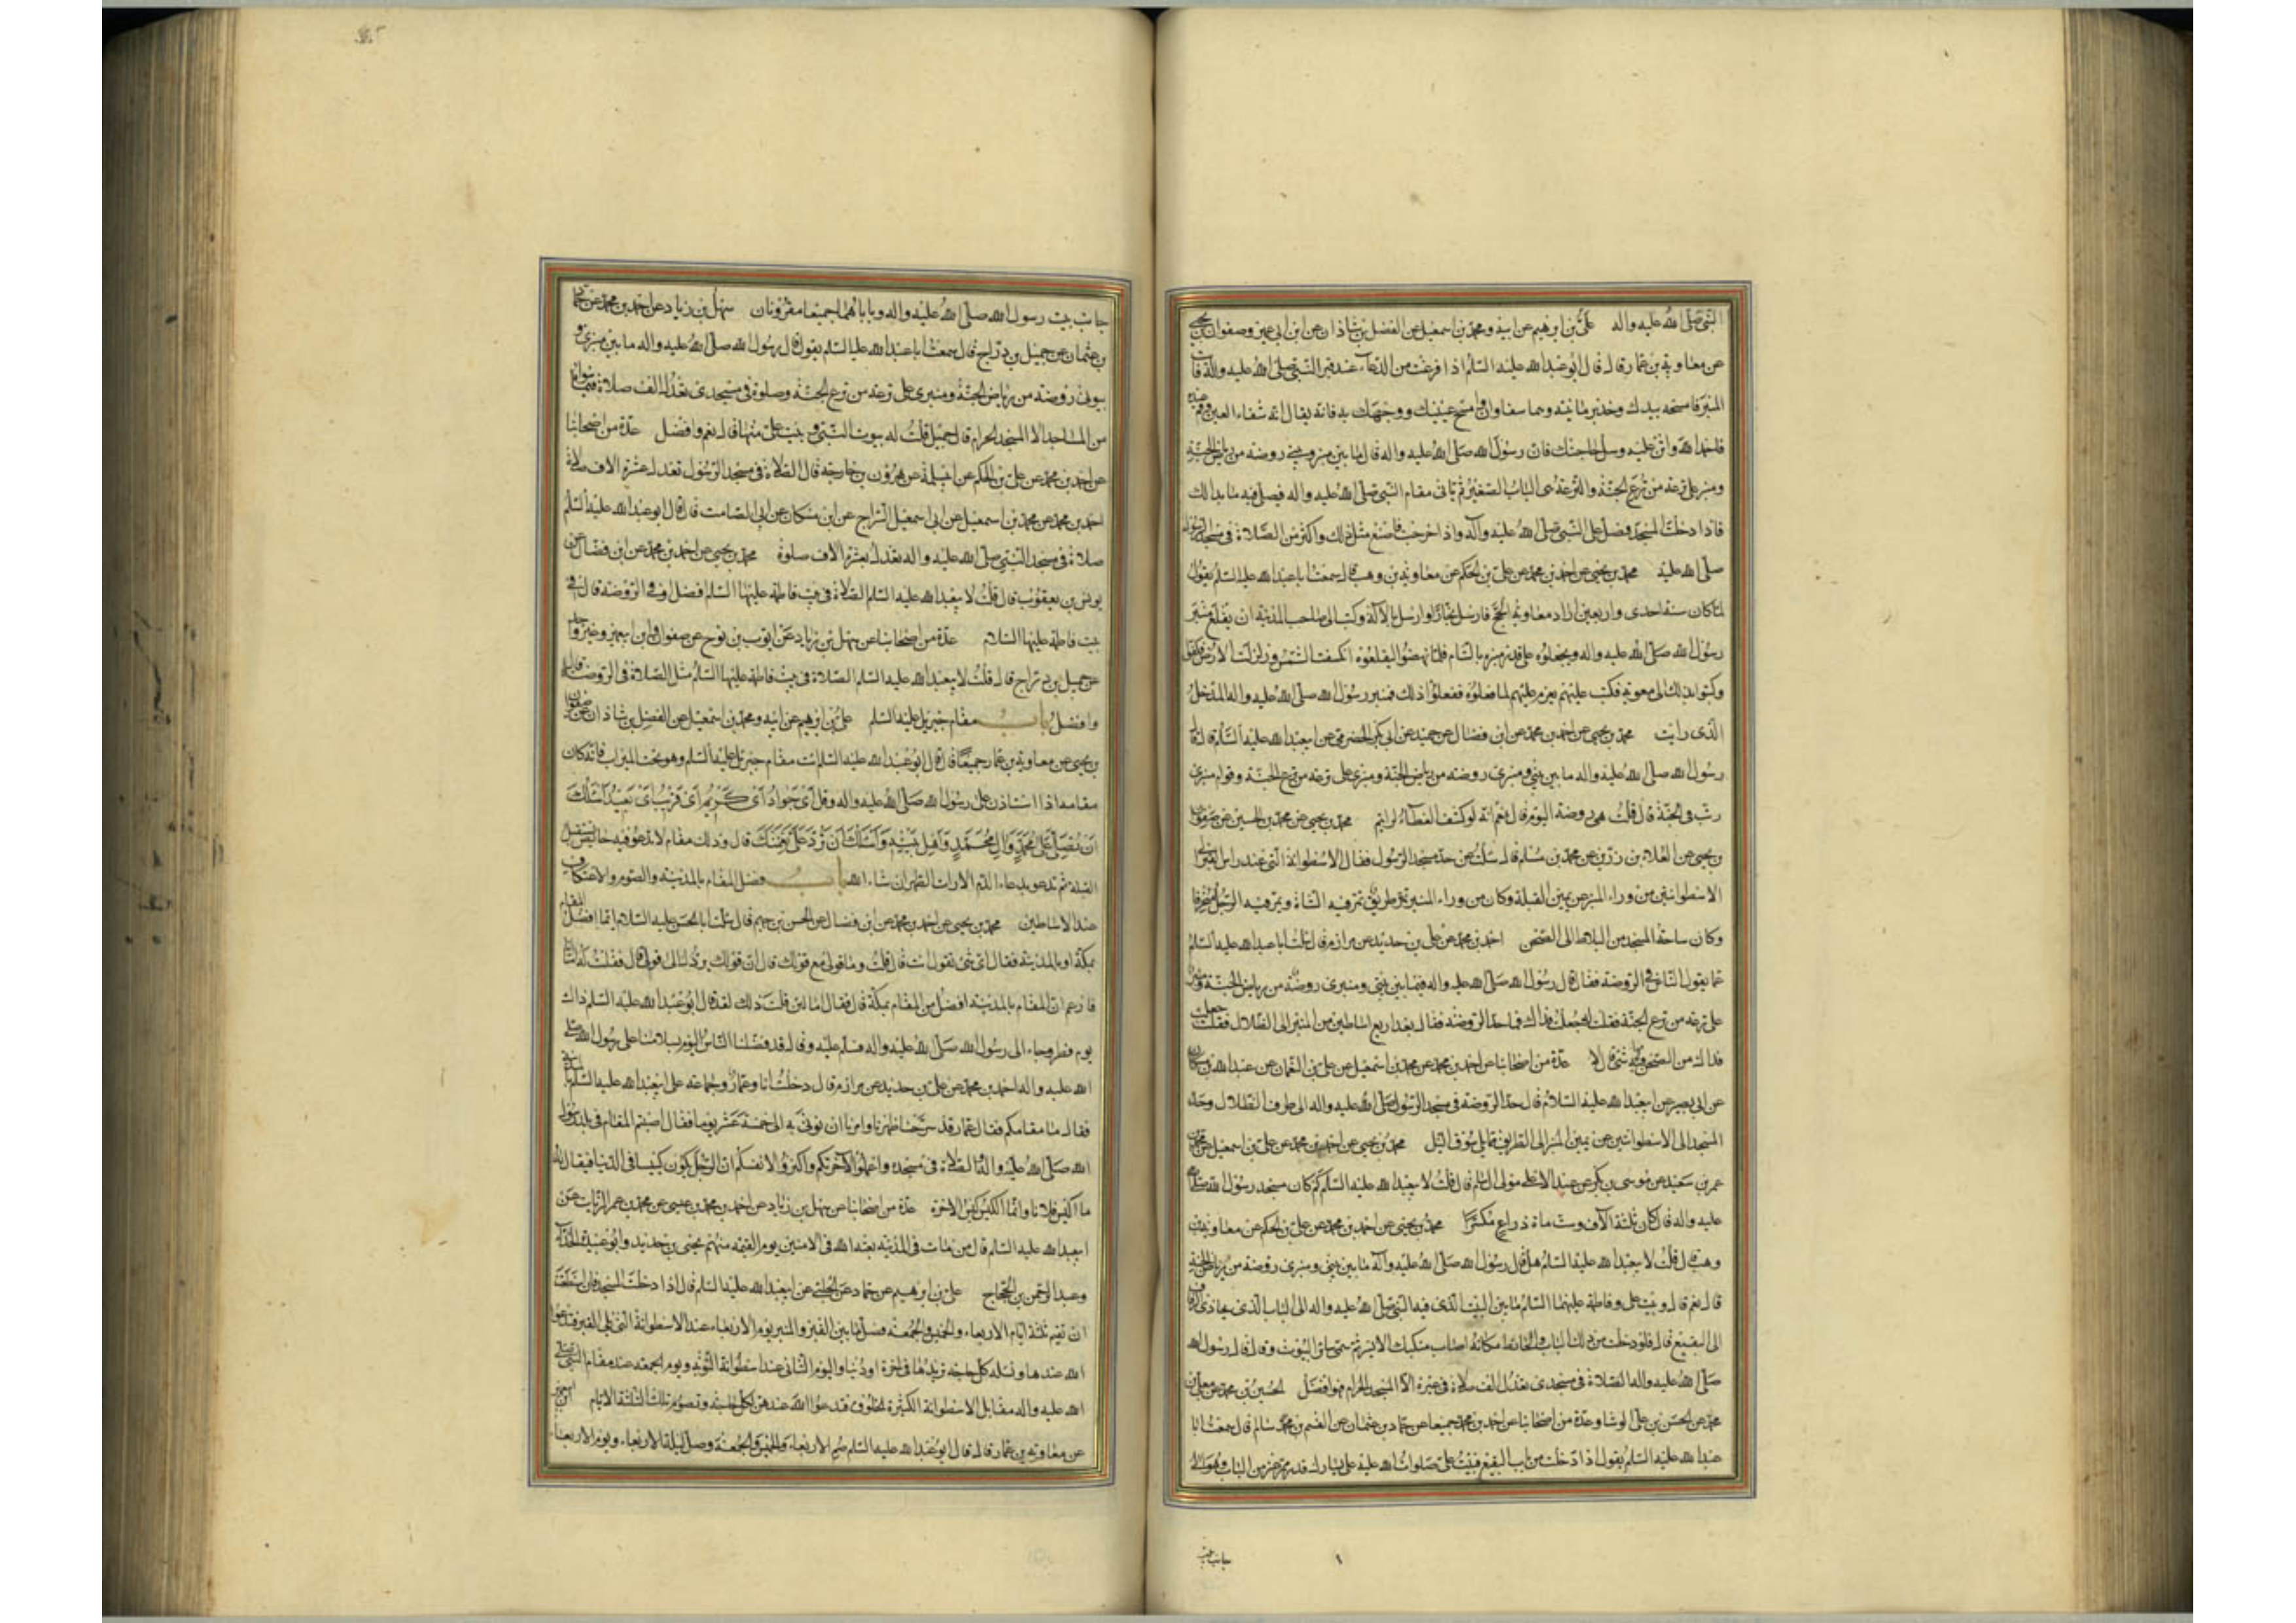 النبي صلى الله عليه واله علي بن ابرهيم عن ابيه ومحمد بن اسمعيل عن الفضل بن شاذان عن ابن ابي عمير وصفوان بن يحيى
عن معاوية بن عمار قال قال ابو عبد الله عليه السلم اذا فرغت من الدعاء عند قبر النبي صلى الله عليه واله فات
المنبر فامسحه بيدك وخذ برمانتيه وهما سفلاوان وامسح عينيك ووجهك به فانه يقال انه شفاء العين وقم عنده
فاحمد الله واثن عليه وسل حاجتك فان رسول الله صلى الله عليه واله قال ما بين منبري وبيتي روضة من رياض الجنة
ومنبري على ترعة من ترع الجنة والترعة هي الباب الصغير ثم تاتي مقام النبي صلى الله عليه واله فتصلي فيه ما بدا لك
فاذا دخلت المسجد فصل على النبي صلى الله عليه وآله واذا خرجت فاصنع مثل ذلك واكثر من الصلاة في مسجد الرسول
صلى الله عليه محمد بن يحيى عن احمد بن محمد عن علي بن الحكم عن معاوية بن وهب قال سمعت ابا عبد الله عليه السلم يقول
لما كان سنة احدى واربعين اراد معاوية الحج فارسل نجارا وارسل بالآلة وكتب الى صاحب المدينة ان يقلع منبر
رسول الله صلى الله عليه واله ويجعلوه على قدر منبره بالشام فلما نهضوا ليقلعوه انكسفت الشمس وزلزلت الارض فكفوا
وكتبوا بذلك الى معوية فكتب عليهم يعزم عليهم لما فعلوه ففعلوا ذلك فمنبر رسول الله صلى الله عليه واله المدخل
الذي رايت محمد بن يحيى عن احمد بن محمد عن ابن فضال عن جميد عن ابي بكر الحضرمي عن ابيعبد الله عليه السلم قال قال
رسول الله صلى الله عليه واله ما بين بيتي ومنبري روضة من رياض الجنة ومنبري على ترعة من ترع الجنة وقوائم منبري
ربت في الجنة قال قلت هي روضة اليوم قال نعم انه لو كشف الغطاء لرايتم محمد بن يحيى عن محمد بن الحسين عن صفوان
بن يحيى عن العلاء بن رزين عن محمد بن مسلم قال سئلته عن حد مسجد الرسول فقال الاسطوانة التي عند راس القبر الى
الاسطوانتين من وراء المنبر عن يمين القبلة وكان من وراء المنبر طريق تمر فيه الشاة ويمر فيه الرجل منحرفا
وكان ساحة المسجد من البلاط الى الصحن احمد بن محمد عن علي بن حديد عن مرازم قال سئلت ابا عبد الله عليه السلم
عما يقول الناس في الروضة فقال قال رسول الله صلى الله عليه واله فيما بين بيتي ومنبري روضة من رياض الجنة ومنبري
على ترعة من ترع الجنة فقلت له جعلت فداك فما حد الروضة فقال بعد اربع اساطين من المنبر الى الظلال فقلت جعلت
فداك من الصحن فيها شيء قال لا عدة من اصحابنا عن احمد بن محمد عن محمد بن اسمعيل عن علي بن النعمان عن عبد الله بن مسكان
عن ابي بصير عن ابيعبد الله عليه السلام قال حد الروضة في مسجد الرسول صلى الله عليه واله الى طرف الظلال وحد
المسجد الى الاسطوانتين عن يمين المنبر الى الطريق مما يلي سوق الليل محمد بن يحيى عن احمد بن محمد عن علي بن اسمعيل عن محمد بن
عمر بن سعيد عن موسى بن بكر عن عبد الاعلى مولى ال سام قال قلت لابيعبد الله عليه السلم كم كان مسجد رسول الله صلى الله
عليه واله قال كان ثلثة آلاف وستمائة ذراع مكسرا محمد بن يحيى عن احمد بن محمد عن علي بن الحكم عن معاوية بن
وهب قال قلت لابيعبد الله عليه السلم هل قال رسول الله صلى الله عليه وآله ما بين بيتي ومنبري روضة من رياض الجنة
قال نعم قال وبيت علي وفاطمة عليهما السلم ما بين البيت الذي فيه النبي صلى الله عليه واله الى الباب الذي يحاذي الزقاق
الى البقيع قال فلو دخلت من ذلك الباب والحائط مكانه اصاب منكبك الايسر ثم سمى سائر البيوت وقال قال رسول الله
صلى الله عليه واله الصلاة في مسجدي تعدل الف صلاة في غيره الا المسجد الحرام فهو افضل الحسين بن محمد عن معلى بن
محمد عن الحسن بن علي الوشا وعدة من اصحابنا عن احمد بن محمد جميعا عن حماد بن عثمان عن القسم بن محمد سالم قال سمعت ابا
عبد الله عليه السلم يقول اذا دخلت من باب البقيع فبيت علي صلوات الله عليه على يسارك قدر ممر عنز من الباب وهو الى
جانب بيت
جانب بيت رسول الله صلى الله عليه واله وباباهما جميعا مقرونان سهل بن زياد عن احمد بن محمد عن حماد
بن عثمان عن جميل بن دراج قال سمعت ابا عبد الله عليه السلم يقول قال رسول الله صلى الله عليه واله ما بين منبري و
بيوتي روضة من رياض الجنة ومنبري على ترعة من ترع الجنة وصلوة في مسجدي تعدل الف صلاة فيما سواه
من المساجد الا المسجد الحرام قال جميل قلت له بيوت النبي وبيت علي منها قال نعم وافضل عدة من اصحابنا
عن احمد بن محمد عن علي بن الحكم عن ابي سلمة عن هرون بن خارجة قال الصلاة في مسجد الرسول تعدل عشرة الاف صلاة
احمد بن محمد عن محمد بن اسمعيل عن ابي اسمعيل السراج عن ابن مسكان عن ابي الصامت قال قال ابو عبد الله عليه السلم
صلاة في مسجد النبي صلى الله عليه واله تعدل بعشرة الاف صلوة محمد بن يحيى عن احمد بن محمد عن ابن فضال عن
يونس بن يعقوب قال قلت لابيعبد الله عليه السلم الصلاة في بيت فاطمة عليها السلم افضل او في الروضة قال في
بيت فاطمة عليها السلام عدة من اصحابنا عن سهل بن زياد عن ايوب بن نوح عن صفوان وابن ابيعمير وغير واحد
عن جميل بن دراج قال قلت لابيعبد الله عليه السلم الصلاة في بيت فاطمة عليها السلم مثل الصلاة في الروضة قال
وافضل باب مقام جبريل عليه السلم علي بن ابرهيم عن ابيه ومحمد بن اسمعيل عن الفضل بن شاذان عن صفوان
بن يحيى عن معاوية بن عمار جميعا قال قال ابو عبد الله عليه السلم ائت مقام جبريل عليه السلم وهو تحت الميزاب فانه كان
مقامه اذا استاذن على رسول الله صلى الله عليه واله وقل اي جواد اي كريم اي قريب اي بعيد اسألك
ان تصلي على محمد وال محمد واهل بيته واسألك ان ترد علي نعمتك قال وذلك مقام لا تدعو فيه حائض تستقبل
القبلة ثم تدعو بدعاء الدم الا رات الطهر ان شاء الله باب فضل المقام بالمدينة والصوم والاعتكاف
عند الاساطين محمد بن يحيى عن احمد بن محمد عن ابن فضال عن الحسن بن جهم قال سئلت ابا الحسن عليه السلام ايما افضل المقام
بمكة او بالمدينة فقال اي شيء تقول انت قال قلت وما قولي مع قولك قال ان قولك يردك الى قولي قال فقلت له اما انا
فازعم ان المقام بالمدينة افضل من المقام بمكة قال فقال اما لئن قلت ذلك لقد قال ابو عبد الله عليه السلم ذاك
يوم فطر وجاء الى رسول الله صلى الله عليه واله فسلم عليه وقال قد فضلنا الناس اليوم بسلامنا على رسول الله صلى
الله عليه واله احمد بن محمد عن علي بن حديد عن مرازم قال دخلت انا وعمار وجماعة على ابيعبد الله عليه السلم بالمدينة
فقال ما مقامكم فقال عمار قد سرحنا ظهرنا وامرنا ان نوتى به الى خمسة عشر يوما فقال اصبتم المقام في بلد رسول
الله صلى الله عليه واله والصلاة في مسجده واعملوا لآخرتكم واكثروا لانفسكم ان الرجل يكون كيسا في الدنيا فيقال
ما اكيس فلانا وانما الكيس كيس الاخرة عدة من اصحابنا عن سهل بن زياد عن احمد بن محمد عن عيسى عن محمد بن عمر الزيات عن
ابيعبد الله عليه السلم قال من مات في المدينة بعثه الله في الامنين يوم القيمة منهم يحيى بن حديد وابو عبيدة الحذاء
وعبد الرحمن بن الحجاج علي بن ابرهيم عن حماد عن الحلبي عن ابيعبد الله عليه السلم قال اذا دخلت المسجد فان استطعت
ان تقيم ثلثة ايام الاربعاء والخميس والجمعة فصل ما بين القبر والمنبر يوم الاربعاء عند الاسطوانة التي تلي القبر فتدعوا
الله عندها وتسئله كل حاجة تريدها في اخرة او دنيا واليوم الثاني عند اسطوانة التوبة ويوم الجمعة عند مقام النبي صلى
الله عليه واله مقابل الاسطوانة الكثيرة الخلوق فتدعوا الله عندهن لكل حاجة وتصوم تلك الثلثة الايام
عن معاوية بن عمار قال قال ابو عبد الله عليه السلم صم الاربعاء والخميس والجمعة وصل ليلة الاربعاء ويوم الاربعاء